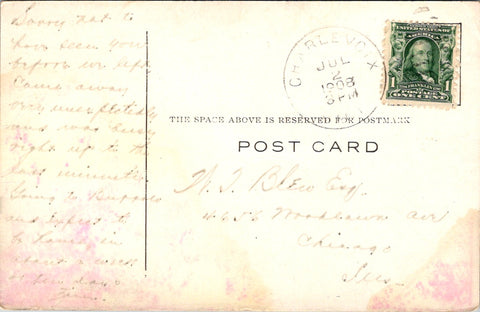 Sorry not to
have seen you
before we left
Came away
very unexpectedly
and was busy
right up to the
last minute.
Going to Buffalo
and expect to
be home in
about a week
or ten days
CHARLEVOIX
JUL
2
1908
3 PM
UNITED STATES OF
AMERICA
FRANKLIN
1 ONE CENT 1
THE SPACE ABOVE IS RESERVED FOR POSTMARK
POST CARD
N. T. Blew Esq.
4656 Woodlawn Ave
Chicago
Ills.